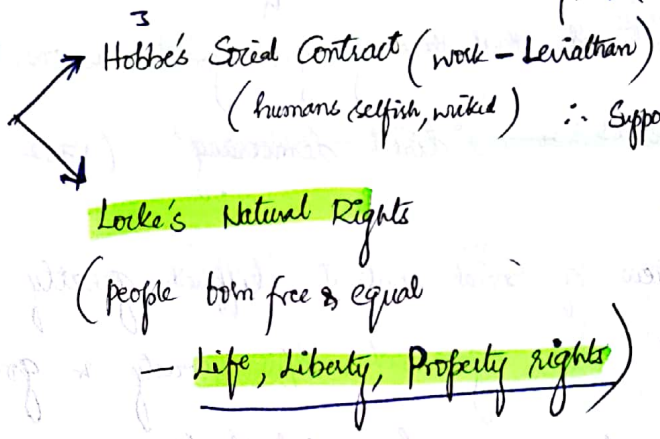 3
Hobbe's Social Contract (work - Leviathan)
(humans selfish, wicked) ∴ Suppo
Locke's Natural Rights
(people born free & equal
— Life, Liberty, Property rights)